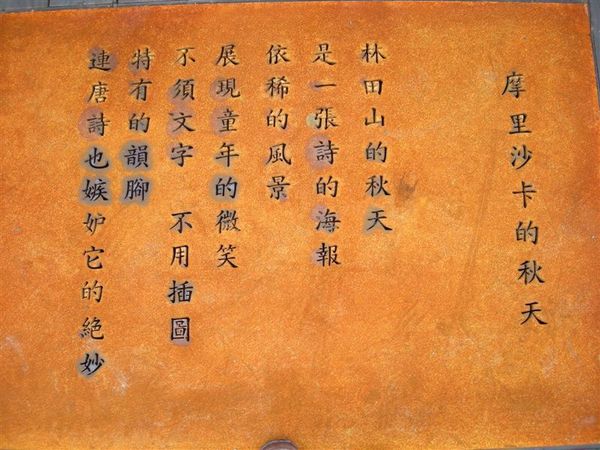 摩里沙卡的秋天
林田山的秋天
是一張詩的海報
依稀的風景
展現童年的微笑
不須文字 不用插圖
特有的韻腳
連唐詩也嫉妒它的絕妙